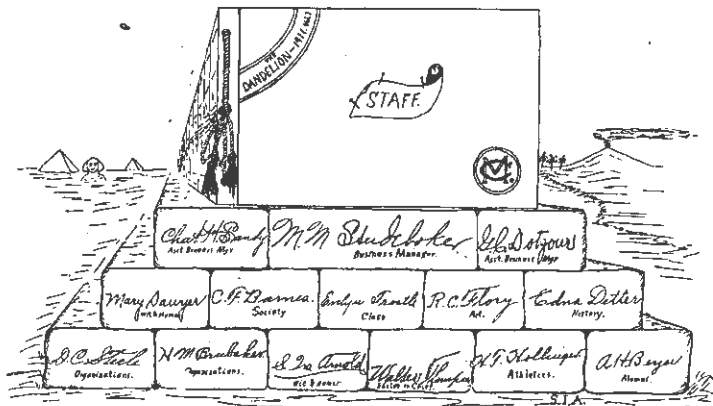 THE
DANDELION-
STAFF.
MC
Chas. H. Bandy
Asst. Business Mgr.
M M Studebaker
Business Manager.
Asst. Business Mgr.
Mary Sawyer
C. F. Barnes.
Society
Evelyn Trostle
Class
R. C. Flory
Art.
Edna Detter
History.
D. C. Steele
Organizations.
H M Brubaker
Organizations.
S Ira Arnold
Walter Thompson
Editor in Chief.
H. F. Hollinger
Athletics.
A. H. Berger
Alumni.
S.I.A.